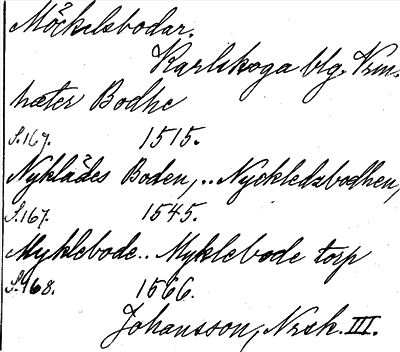 Möckelsbodar.
Karlskoga blg. Num-
hæter Bodhe
S.167. 1515.
Nyklådes Boden,.. Nyckledzbodhen,
S.167. 1545.
Myklebode.. Myklebode torp
S.168. 1566.
Johansson, Noræsk. III.